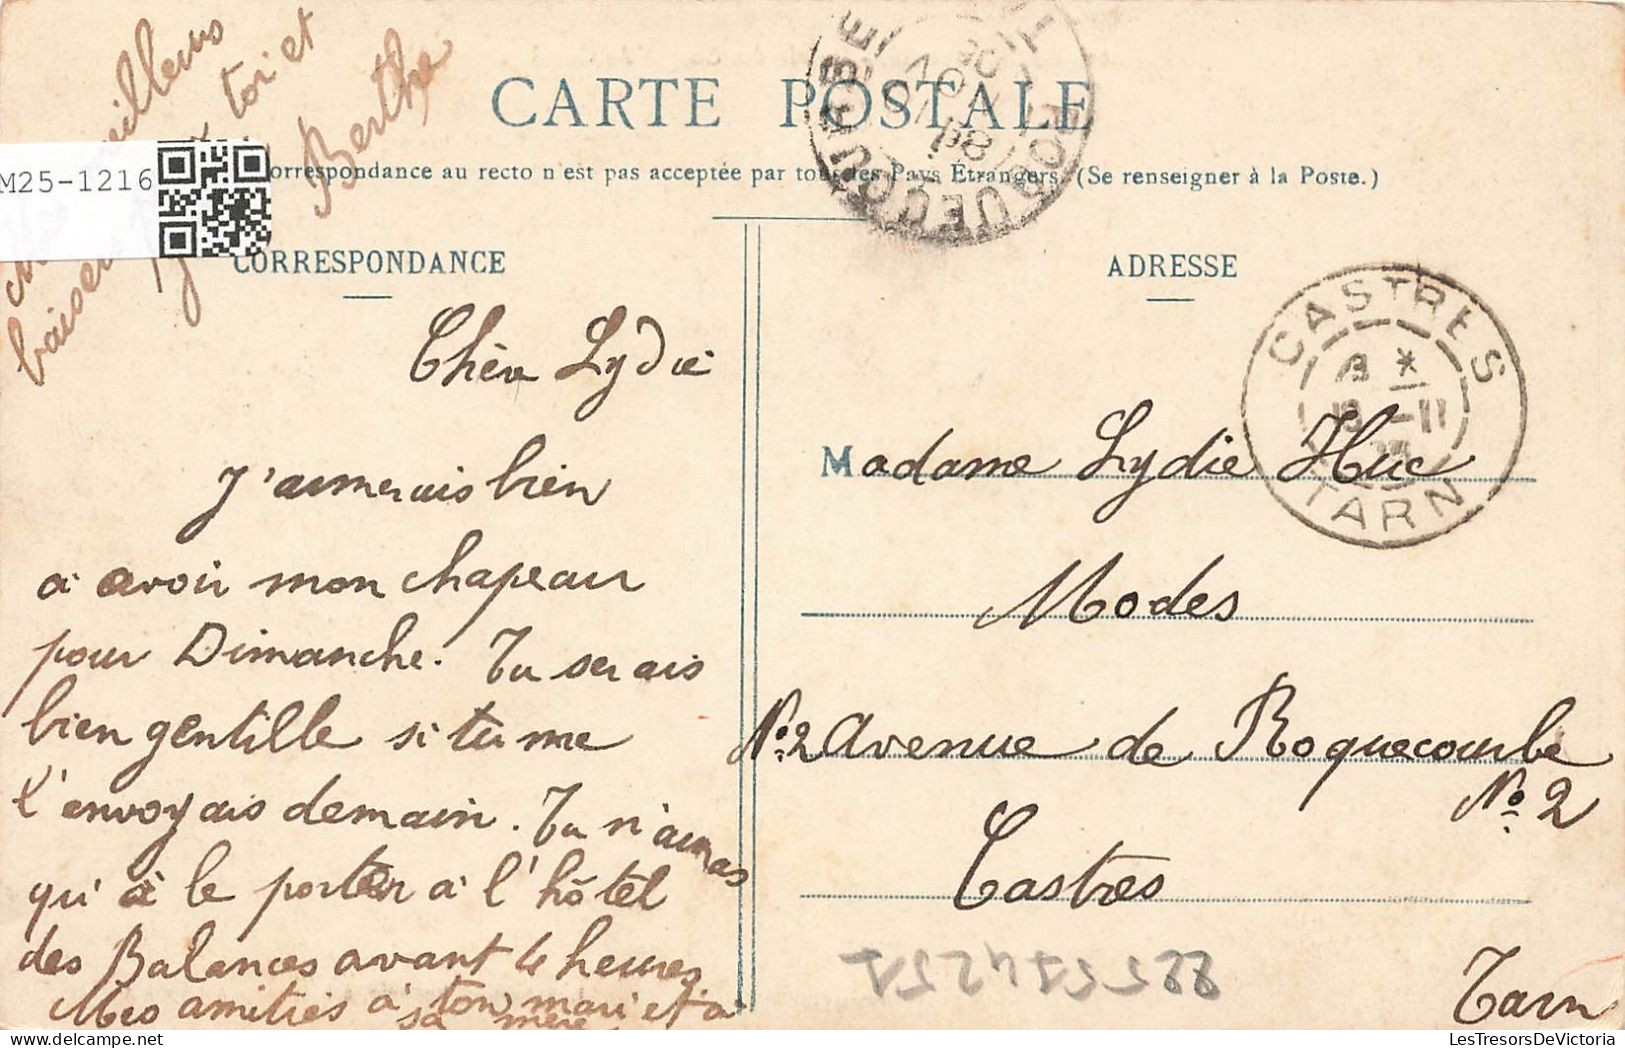 CARTE POSTALE
orrespondance au recto n'est pas acceptée par tous les Pays Étrangers. (Se renseigner à la Poste.)
M25-1216
CORRESPONDANCE
Chère Lydie
J'aimerais bien
à avoir mon chapeau
pour Dimanche. Tu serais
bien gentille si tu me
l'envoyais demain. Tu n'auras
qu'à le porter à l'hôtel
des Balances avant 4 heures
Mes amitiés à ton mari et à
sa mère
meilleurs
baisers
toi et
Berthe
ADRESSE
Madame Lydie Huc
Modes
N° 2 Avenue de Roquecourbe
N° 2
Castres
Tarn
CASTRES
TARN
ROQUECOURBE
LesTresorsDeVictoria